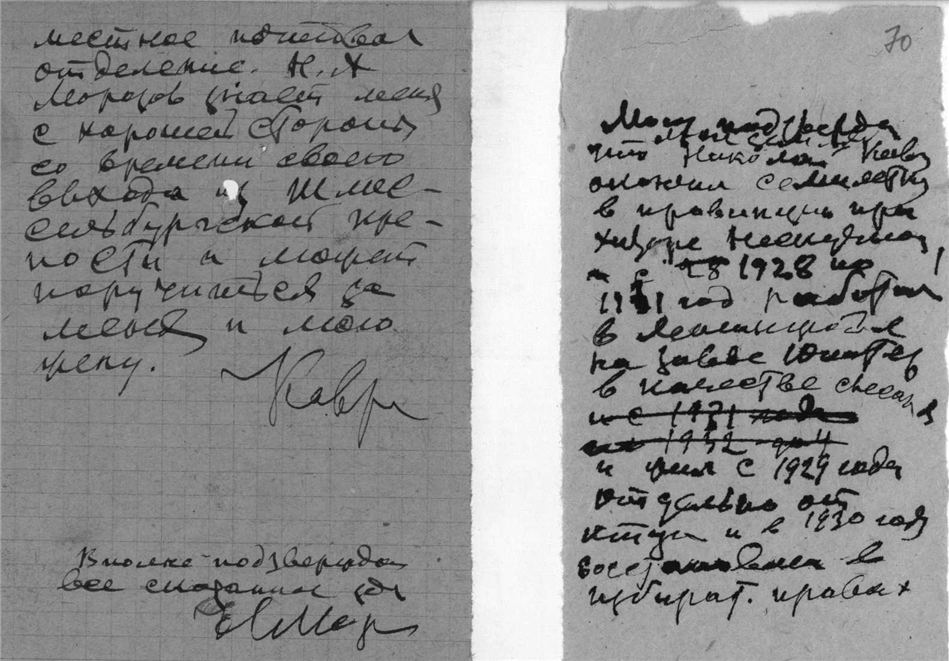 местное почтовое
отделение. Н. А
Морозов знает меня
с хорошей стороны
со времени своего
выхода из Шлис-
сельбургской кре-
пости и может
поручиться за
меня и мою
жену.
Кавр
Вполне подтверждаю
все сказанное
НМор
70
Могу подтвердить
что Николай
окончил семилетку
в провинции при
с 28 1928 по
1931 год работал
в Ленинграде
на заводе Юпитер
в качестве слесаря
и с 1931 года
по 1932 год
и жил с 1929 года
отдельно от
отца и в 1930 году
восстановлен в
избират. правах